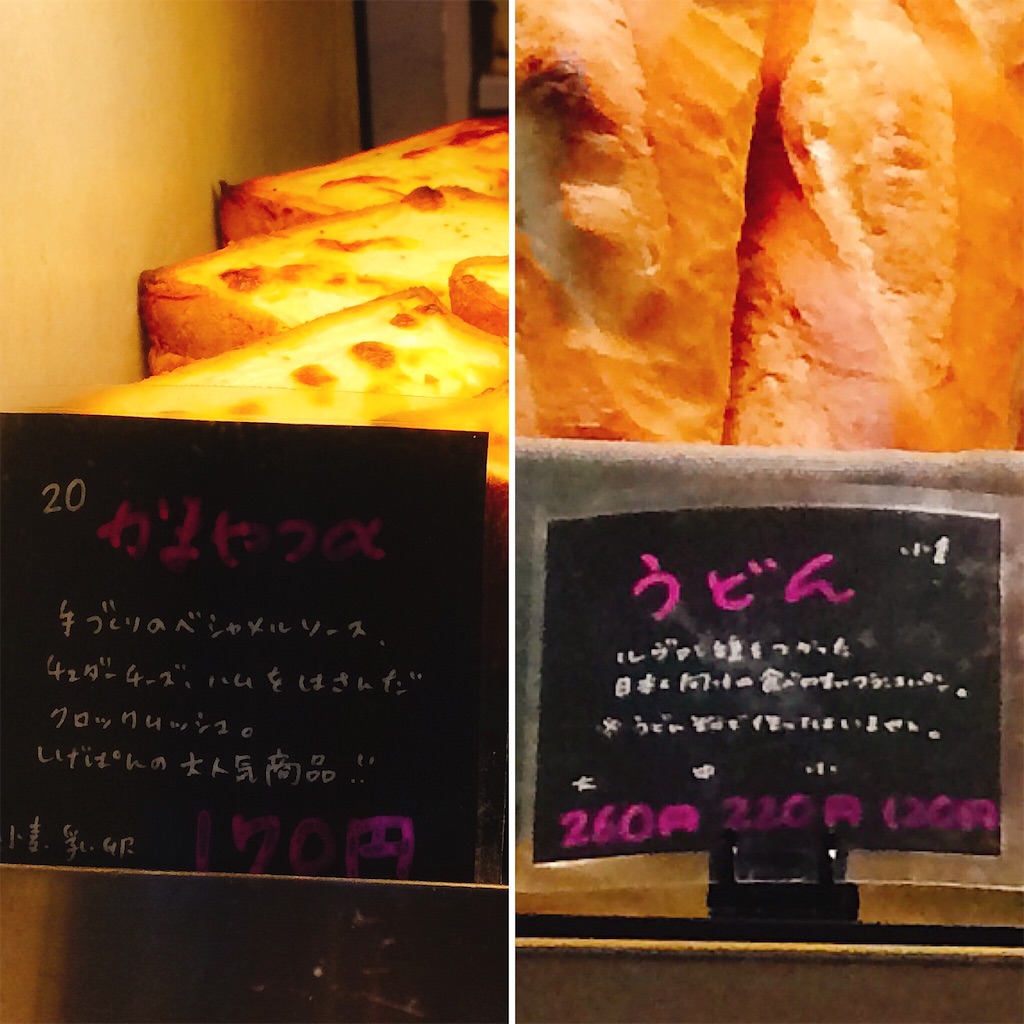 20
かまやつα
手づくりのベシャメルソース、
チェダーチーズ、ハムをはさんだ
クロックムッシュ。
しげぱんの大人気商品!!
小麦・乳・卵
170円
小麦
うどん
ルヴァン種をつかった
日本人向けの食べやすいフランスパン。
※うどん粉は使ってはいません。
大 中 小
260円 220円 120円